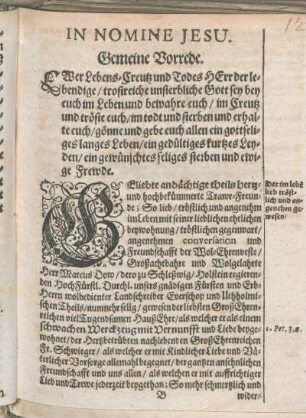 IN NOMINE JESU.
Gemeine Vorrede.
ER Lebens-Creutz und Todes HErr der le-
bendige / trostreiche unsterbliche Gott sey bey
euch im Leben und bewahre euch / im Creutz
und tröste euch / im todt und sterben und erhal-
te euch / gönne und gebe euch allen ein gottseli-
ges langes Leben / ein gedültiges kurtzes Ley-
den / ein gewünschtes seliges sterben und ewi-
ge Frewde.
GEliebte andächtige theils hertz-
und hochbekümmerte Trawr-Freun-
de: So lieb / tröstlich und angenehm
im Leben mit seiner lieblichen ehelichen
beywohnung / tröstlichen gegenwart /
angenehmen conversation und
Freundschafft der Wol-Ehrnveste /
Großachtbahre und Wolgelahrte
Herr Marcus Dow / dero zu Schleßwig / Holstein regieren-
den HochFürstl. Durchl. unsers gnädigen Fürsten und Erb-
Herrn wolbedienter Landschreiber Everschop und Uthholmi-
schen Theils / nunmehr sälig / gewesen der GroßEhrenreichen
viel Tugendsamen HaußEhre / als welcher er als einem
schwachen Werckzeug mit Vernunfft und Liebe beyge-
wohnet / der Hertzbetrübten nachlebenden GroßEhrenreichen
Fr. Schwieger / als welcher er mit Kindlicher Liebe und Vä-
terlicher Vorsorge allenthalb begegnet / der gantzen ansehnlichen
Freundschafft und uns allen / als welchen er mit auffrichtiger
Lieb und Trewe jederzeit beygethan: So mehr schmertzlich und
B
wider-
Der im lebē
lieb tröst-
lich und an-
genehm ge-
wesen /
1. Pet. 3.
12